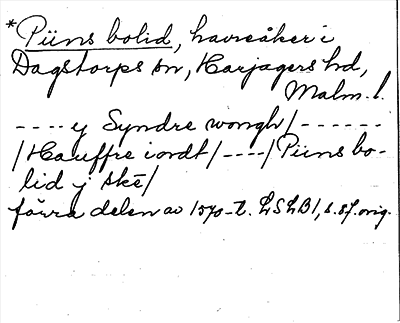 *Püns bolid, havreåker i
Dagstorps sn, Harjagers hd,
Malm. l.
---- y Syndre wongh/------
/Hauffre iordt/----/Püns bo-
lid j skē/
förra delen av 1570-t. LSLB1, s. 87. orig.